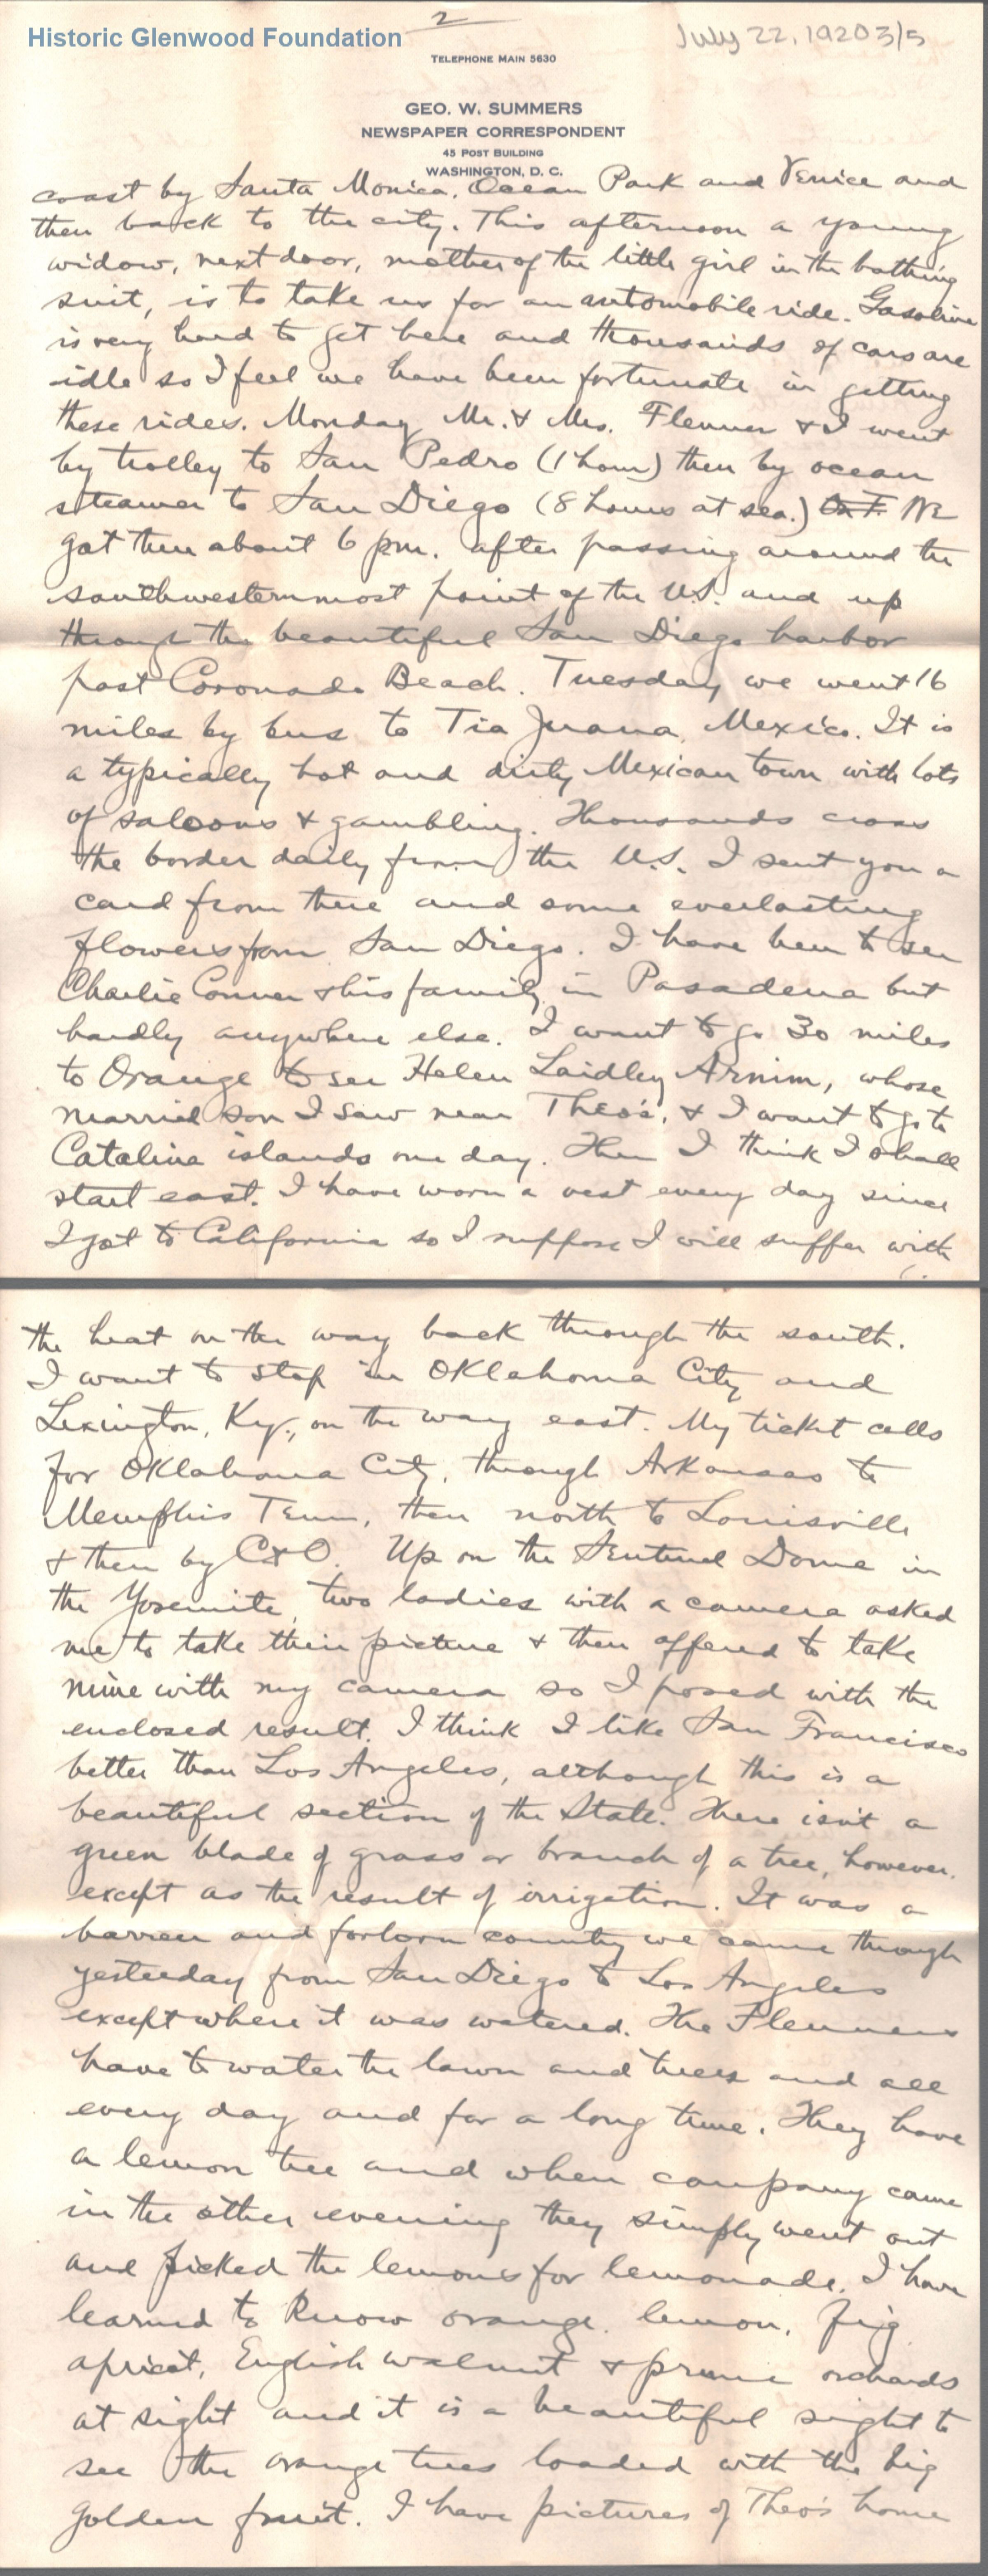 2
Historic Glenwood Foundation
July 22, 1920 3/5
TELEPHONE MAIN 5630
GEO. W. SUMMERS
NEWSPAPER CORRESPONDENT
45 POST BUILDING
WASHINGTON, D. C.
coast by Santa Monica, Ocean Park and Venice and
then back to the city. This afternoon a young
widow, next door, mother of the little girl in the bathing
suit, is to take us for an automobile ride. Gasoline
is very hard to get here and thousands of cars are
idle so I feel we have been fortunate in getting
these rides. Monday Mr. & Mrs. Flenner & I went
by trolley to San Pedro (1 hour) then by ocean
steamer to San Diego (8 hours at sea.) We
got there about 6 pm. after passing around the
southwesternmost point of the U.S. and up
through the beautiful San Diego harbor
past Coronado Beach. Tuesday we went 16
miles by bus to Tia Juana, Mexico. It is
a typically hot and dirty Mexican town with lots
of saloons & gambling. Thousands cross
the border daily from the U.S. I sent you a
card from there and some everlasting
flowers from San Diego. I have been to see
Charlie Conner & his family in Pasadena but
hardly anywhere else. I want to go 30 miles
to Orange to see Helen Laidley Arnim, whose
married son I saw near Theo's, & I want to go to
Catalina islands one day. Then I think I shall
start east. I have worn a vest every day since
I got to California so I suppose I will suffer with
the heat on the way back through the south.
I want to stop in Oklahoma City and
Lexington, Ky., on the way east. My ticket calls
for Oklahoma City, through Arkansas to
Memphis Tenn, then north to Louisville
& then by C&O. Up on the Sentinel Dome in
the Yosemite, two ladies with a camera asked
me to take their picture & then offered to take
mine with my camera so I posed with the
enclosed result. I think I like San Francisco
better than Los Angeles, although this is a
beautiful section of the State. There isn't a
green blade of grass or branch of a tree, however,
except as the result of irrigation. It was a
barren and forlorn country we came through
yesterday from San Diego to Los Angeles
except where it was watered. The Flenners
have to water the lawn and trees and all
every day and for a long time. They have
a lemon tree and when company came
in the other evening they simply went out
and picked the lemons for lemonade. I have
learned to know orange, lemon, fig
apricot, English walnut & prune orchards
at sight and it is a beautiful sight to
see the orange trees loaded with the big
golden fruit. I have pictures of Theo's home